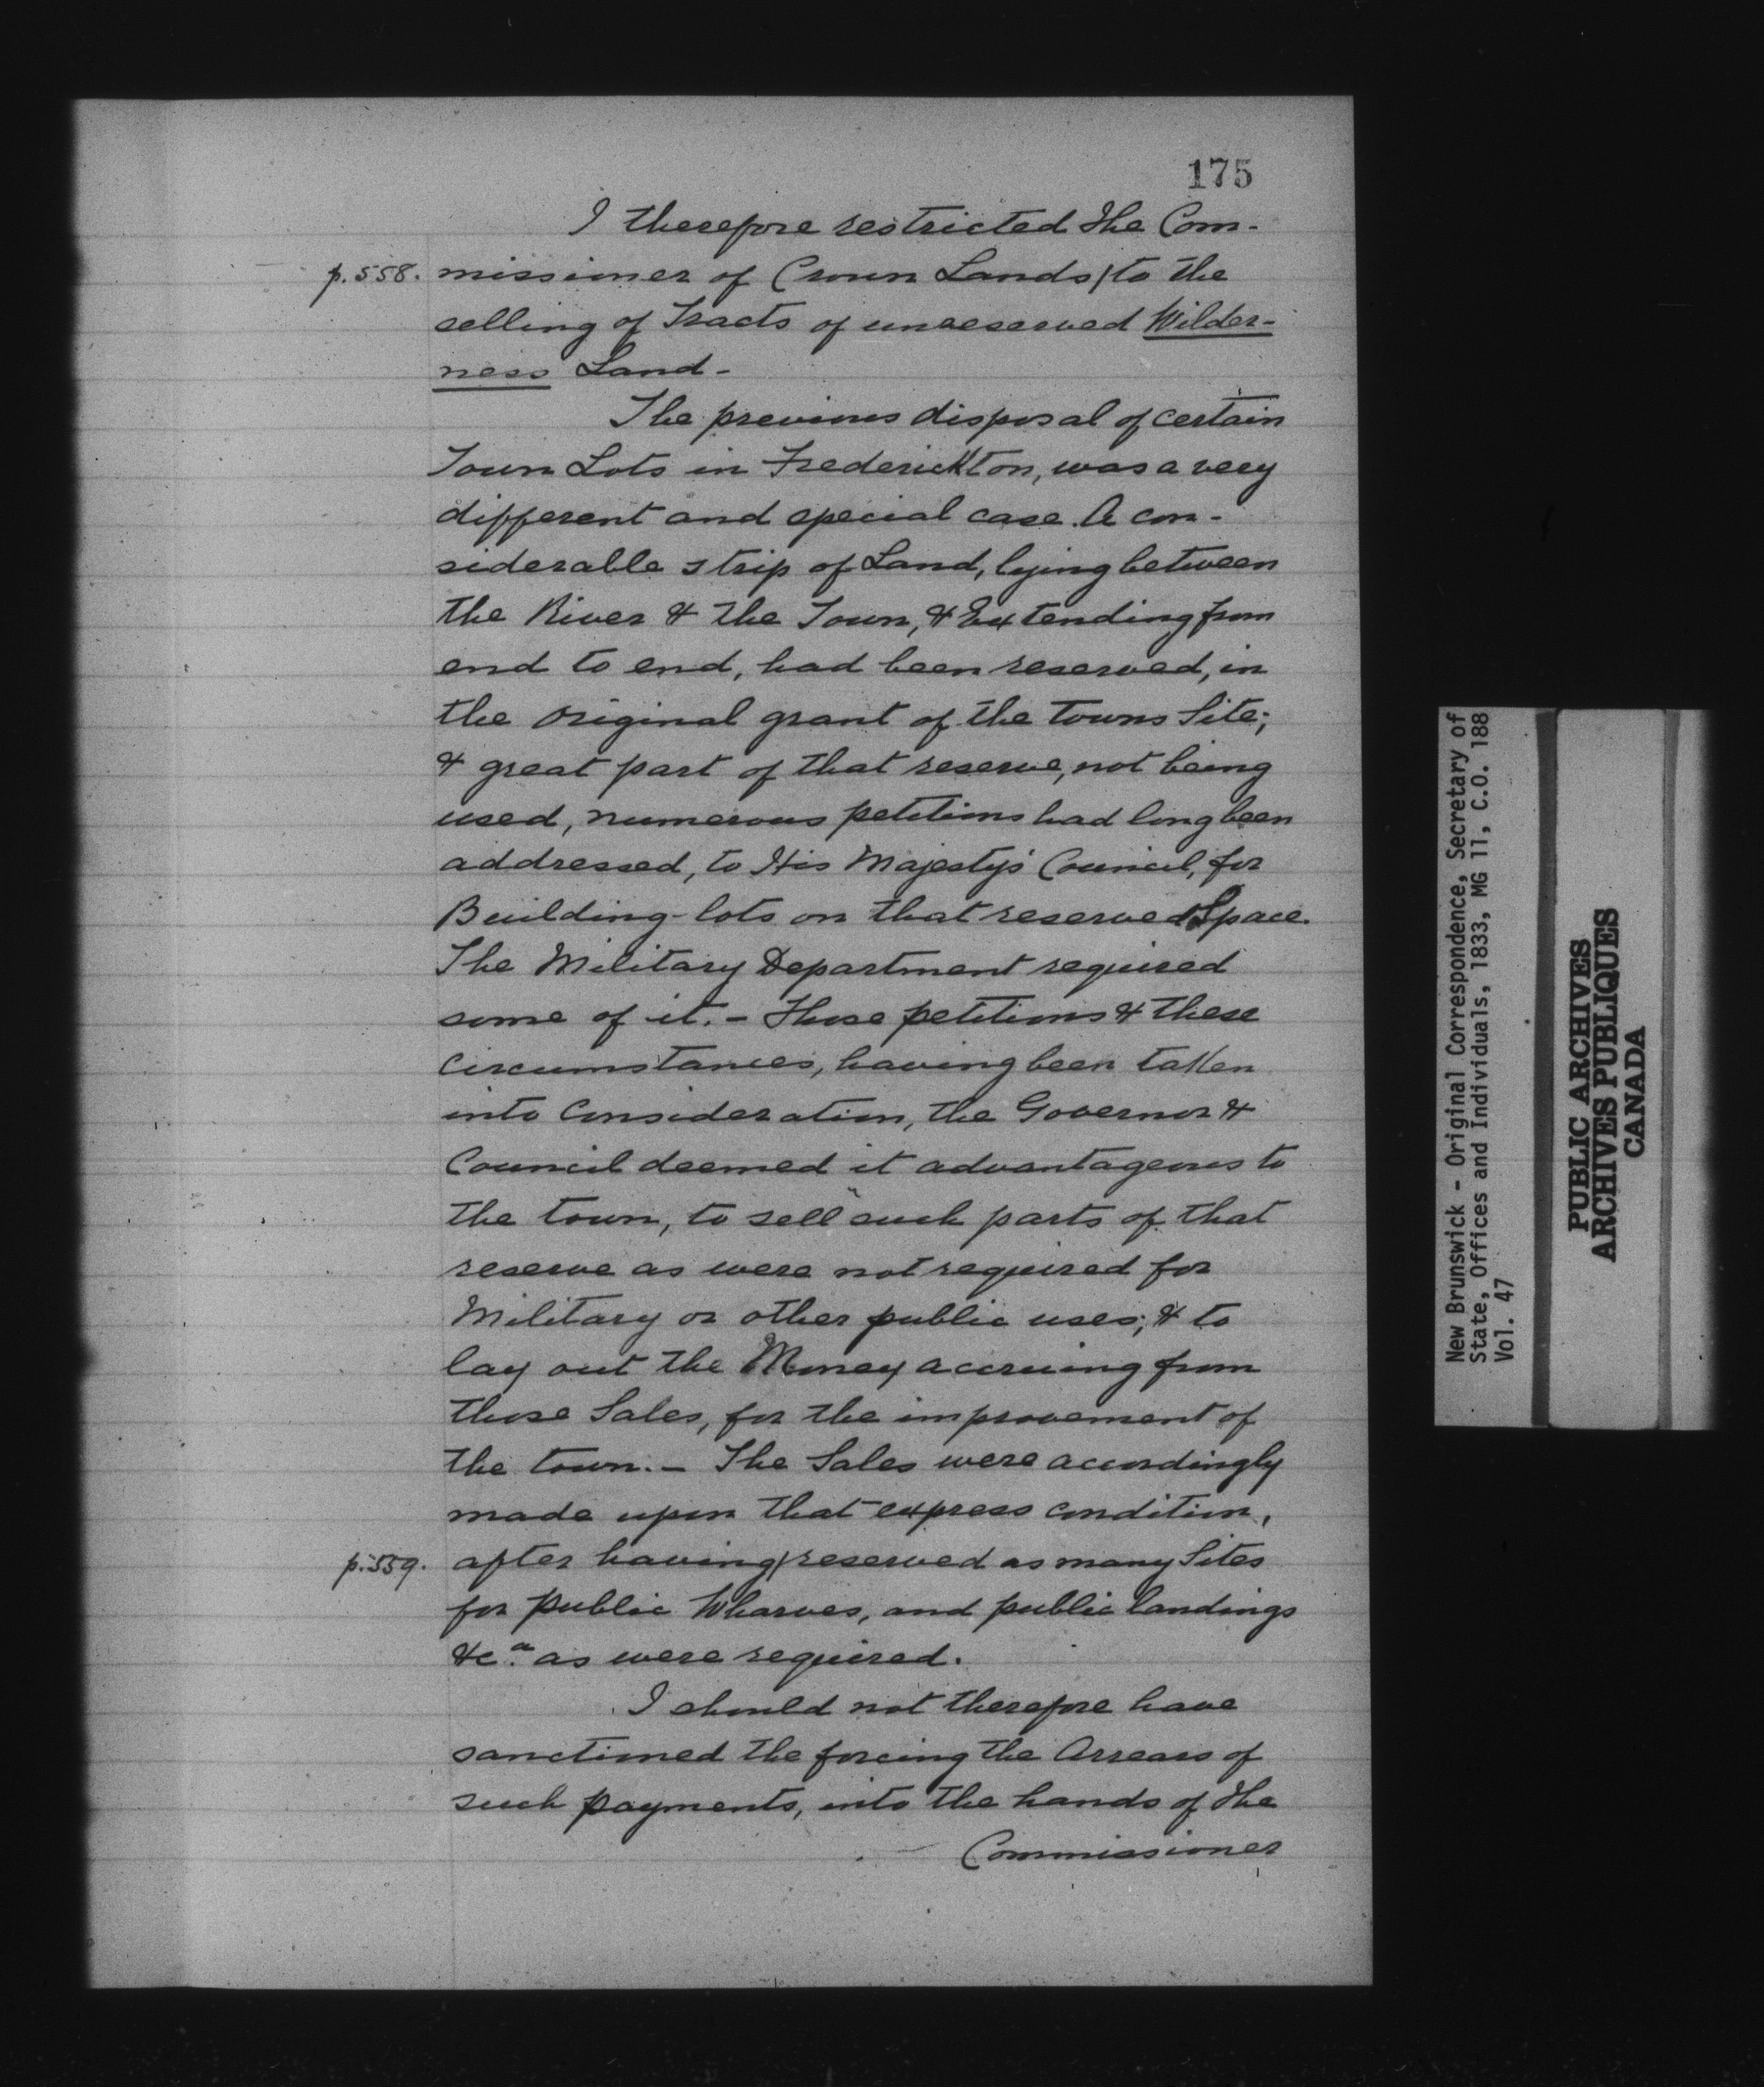 175
I therefore restricted the Com-
p.558. missioner of Crown Lands/to the
selling of Tracts of unreserved Wilder-
ness Land-
The previous disposal of certain
Town Lots in Frederickton, was a very
different and special case. A con-
siderable strip of Land, lying between
the River & the Town, & Extending from
end to end, had been reserved, in
the original grant of the towns Site;
& great part of that reserve, not being
used, numerous petitions had long been
addressed, to His Majesty's Council, for
Building-lots on that reserved Space.
The Military Department required
some of it. - Those petitions & these
circumstances, having been taken
into Consideration, the Governor &
Council deemed it advantageous to
the town, to sell such parts of that
reserve as were not required for
Military or other public uses; & to
lay out the Money accruing from
those Sales, for the improvement of
the town. - The Sales were accordingly
made upon that express condition,
p.559. after having/reserved as many Sites
for public Wharves, and public landings
&c.a as were required.
I should not therefore have
sanctioned the forcing the Arrears of
such payments, into the hands of the
Commissioner
New Brunswick - Original Correspondence, Secretary of
State, Offices and Individuals, 1833, MG 11, C.O. 188
Vol. 47
PUBLIC ARCHIVES
ARCHIVES PUBLIQUES
CANADA